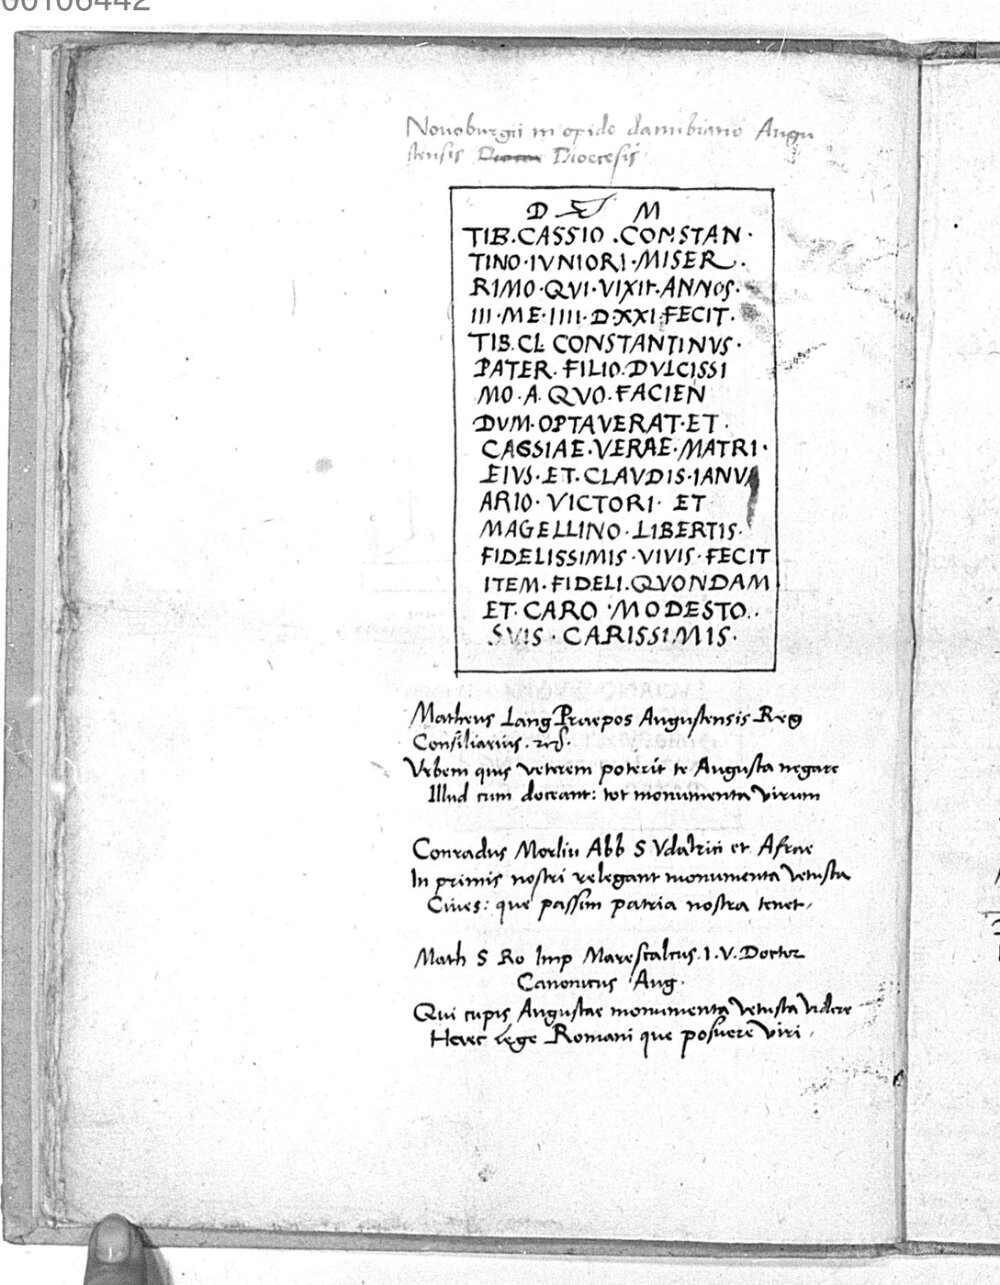 00106442
Novoburgii in opido danubiano Augu
stensis Diocesis
D ET M
TIB·CASSIO·CONSTAN·
TINO·IVNIORI·MISER·
RIMO·QVI·VIXIT·ANNOS·
III·ME·IIII·D·XXI·FECIT·
TIB·CL CONSTANTINVS·
PATER·FILIO·DVLCISSI
MO·A·QVO·FACIEN
DVM·OPTAVERAT·ET·
CASSIAE·VERAE·MATRI·
EIVS·ET·CLAVDIS·IANV
ARIO·VICTORI·ET
MAGELLINO·LIBERTIS·
FIDELISSIMIS·VIVIS·FECIT
ITEM·FIDELI·QVONDAM
ET·CARO·MODESTO··
SVIS·CARISSIMIS·
Matheus Lang Praepos Augustensis Reg
Consiliarius.
Vrbem quis veterem poterit te Augusta negare
Illud cum doceant: tot monumenta virum
Conradus Morlin Abb S Vdalrici et Afrae
In primis nostri relegant monumenta vetusta
Ciues: que passim patria nostra tenet
Math S Ro Imp Marescalcus I·V·Doctor
Canonicus Aug·
Qui cupis Augustae monumenta vetusta videre
Haec lege Romani que posuere viri